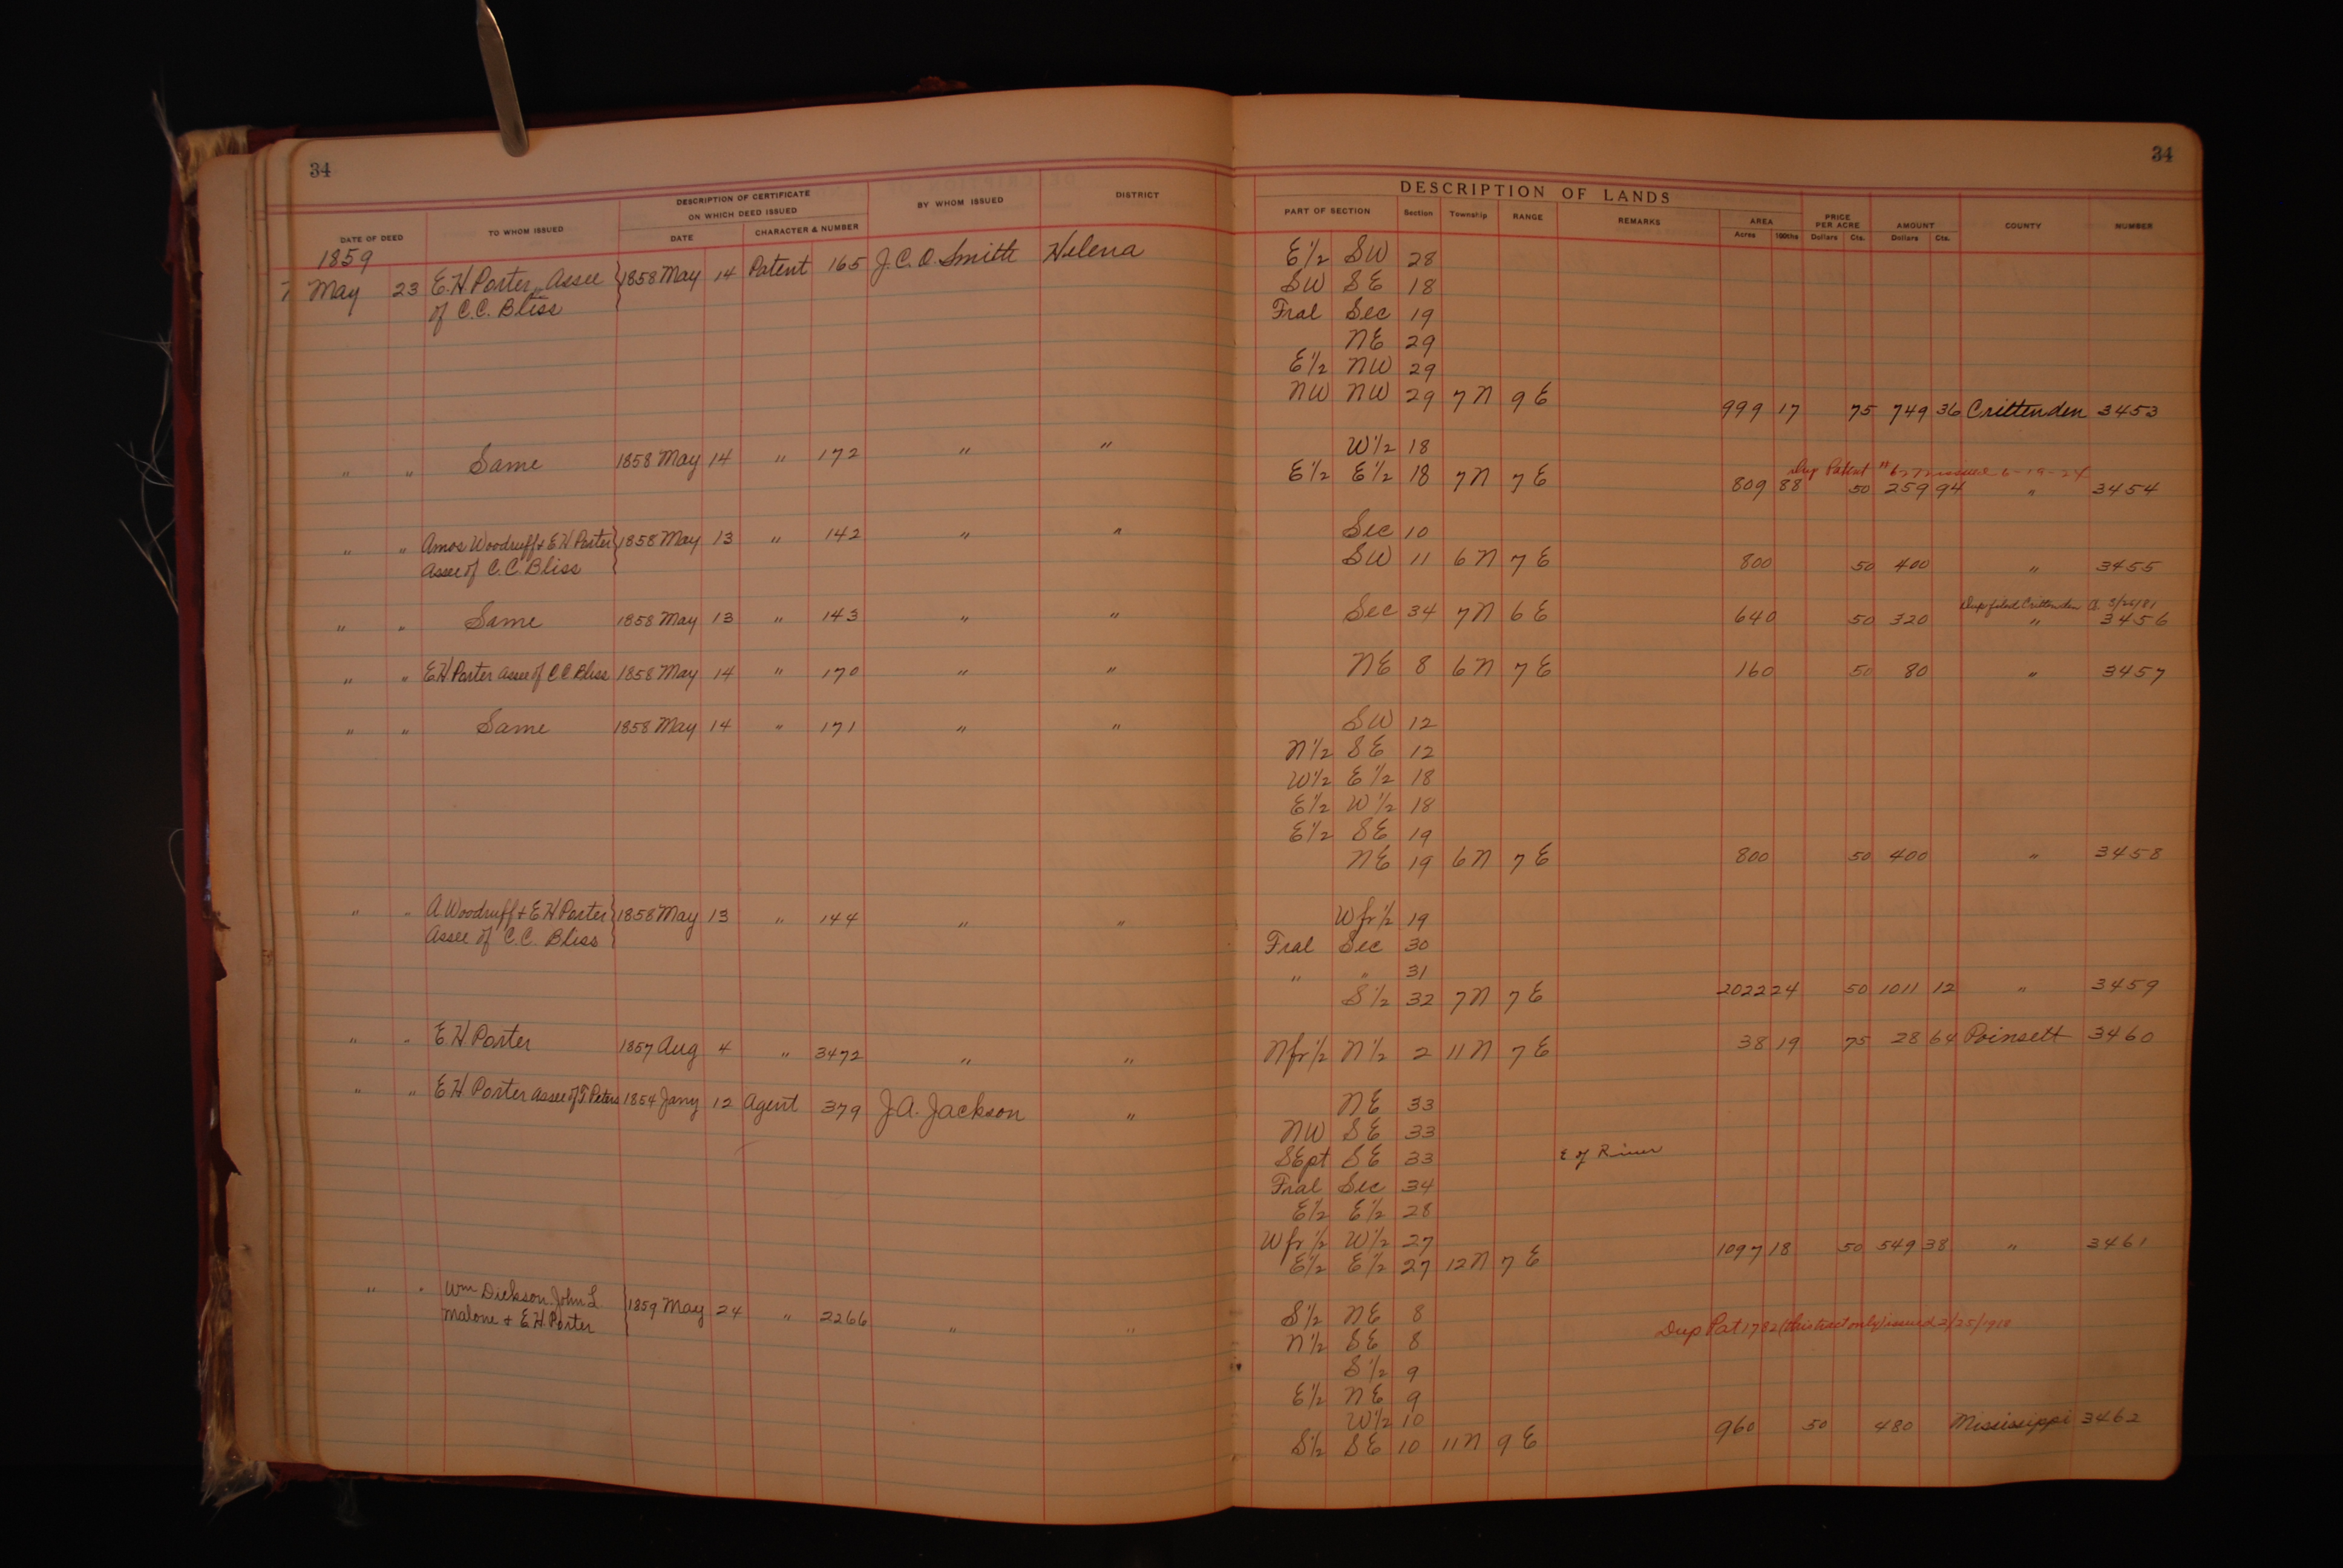 34
DATE OF DEED TO WHOM ISSUED DESCRIPTION OF CERTIFICATE ON WHICH DEED ISSUED DATE CHARACTER & NUMBER BY WHOM ISSUED DISTRICT
1859
May 23 E.H. Porter, Assee 1858 May 14 Patent 165 J.C.O. Smith Helena
of C.C. Bliss
" " Same 1858 May 14 " 172 " "
" " Amos Woodruff & E H Porter 1858 May 13 " 142 " "
Assee of C.C. Bliss
" " Same 1858 May 13 " 143 " "
" " E H Porter Assee of C C Bliss 1858 May 14 " 170 " "
" " Same 1858 May 14 " 171 " "
" " A Woodruff & E H Porter 1858 May 13 " 144 " "
Assee of C.C. Bliss
" " E H Porter 1857 Aug 4 " 3472 " "
" " E H Porter Assee of T Peters 1854 Jany 12 Agent 379 J.A. Jackson "
" " Wm Dickson John L. 1859 May 24 " 2266 " "
Malone & E H Porter
34
DESCRIPTION OF LANDS
PART OF SECTION Section Township RANGE REMARKS AREA Acres 100ths PRICE PER ACRE Dollars Cts. AMOUNT Dollars Cts. COUNTY NUMBER
E½ SW 28
SW SE 18
Fral Sec 19
NE 29
E½ NW 29
NW NW 29 7N 9E 999 17 75 749 36 Crittenden 3453
W½ 18
Dup Patent issued 6-19-24
E½ E½ 18 7N 7E 809 88 50 259 94 " 3454
Sec 10
SW 11 6N 7E 800 50 400 " 3455
Dup filed Crittenden 3/26/81
Sec 34 7N 6E 640 50 320 " 3456
NE 8 6N 7E 160 50 80 " 3457
SW 12
N½ SE 12
W½ E½ 18
E½ W½ 18
E½ SE 19
NE 19 6N 7E 800 50 400 " 3458
W fr ½ 19
Fral Sec 30
" " 31
S½ 32 7N 7E 2022 24 50 1011 12 " 3459
N fr ½ N½ 2 11N 7E 38 19 75 28 64 Poinsett 3460
NE 33
NW SE 33
SE pt SE 33 E of River
Fral Sec 34
E½ E½ 28
W fr ½ W½ 27
E½ E½ 27 12N 7E 1097 18 50 549 38 " 3461
S½ NE 8
Dup Pat 1782 (this tract only) issued 2/25/1918
N½ SE 8
S½ 9
E½ NE 9
W½ 10
S½ SE 10 11N 9E 960 50 480 Mississippi 3462